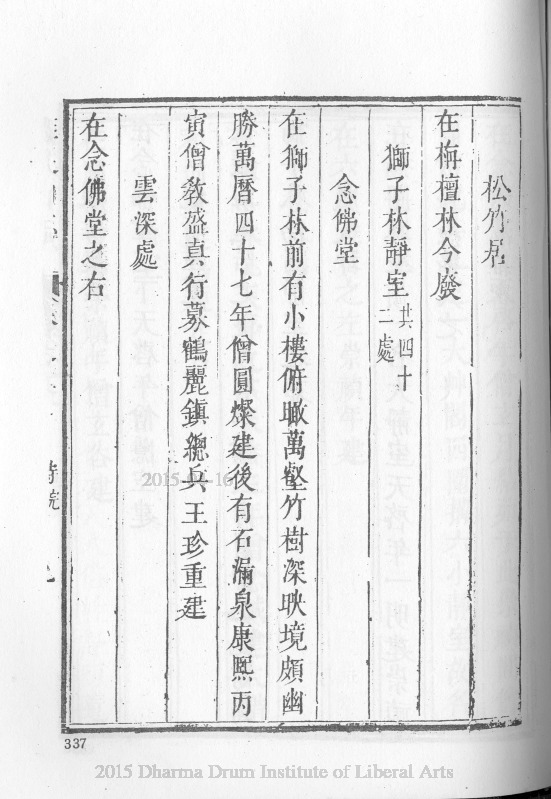 松竹居
在栴檀林今廢
獅子林靜室共四十二處
念佛堂
在獅子林前有小樓俯瞰萬壑竹樹深映境頗幽
勝萬曆四十七年僧圓燦建後有石漏泉康熙丙
寅僧教盛真行募鶴麗鎮總兵王珍重建
雲深處
在念佛堂之右
寺院
337
2015-04-16
2015 Dharma Drum Institute of Liberal Arts